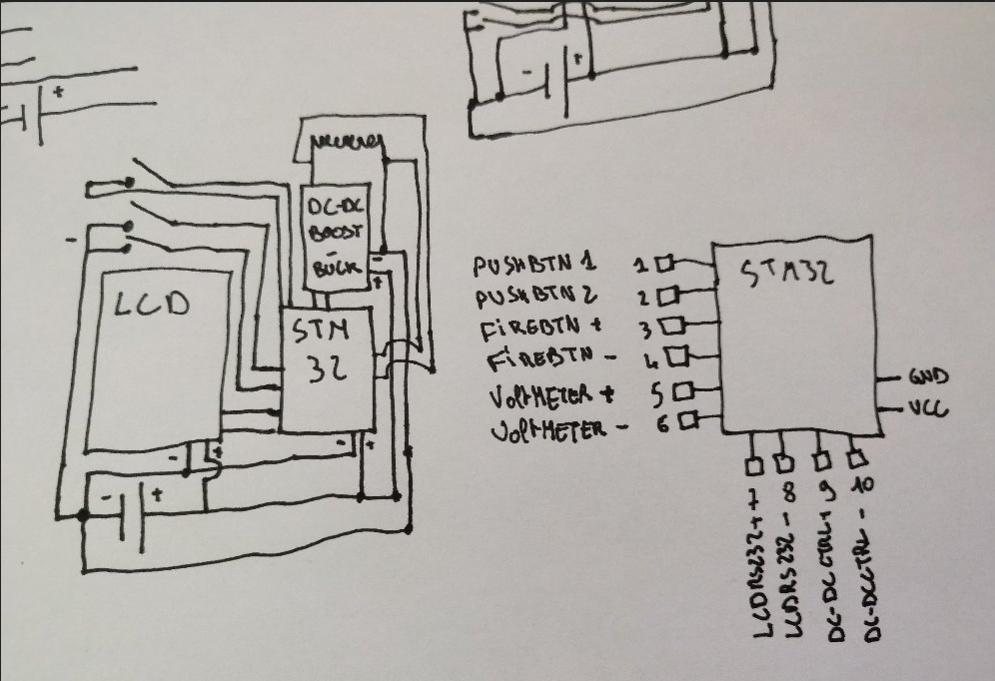 +
-
+
DC-DC
BOOST
-
BUCK
-
+
-
LCD
STM
32
-
+
-
+
-
+
STM32
PUSHBTN 1 1
PUSHBTN 2 2
FiREBTN + 3
FiREBTN - 4
VOltMETER + 5
VOltMETER - 6
GND
VCC
LCDRS232+ 7
LCDRS232- 8
DC-DCCTRL+ 9
DC-DCCTRL- 10